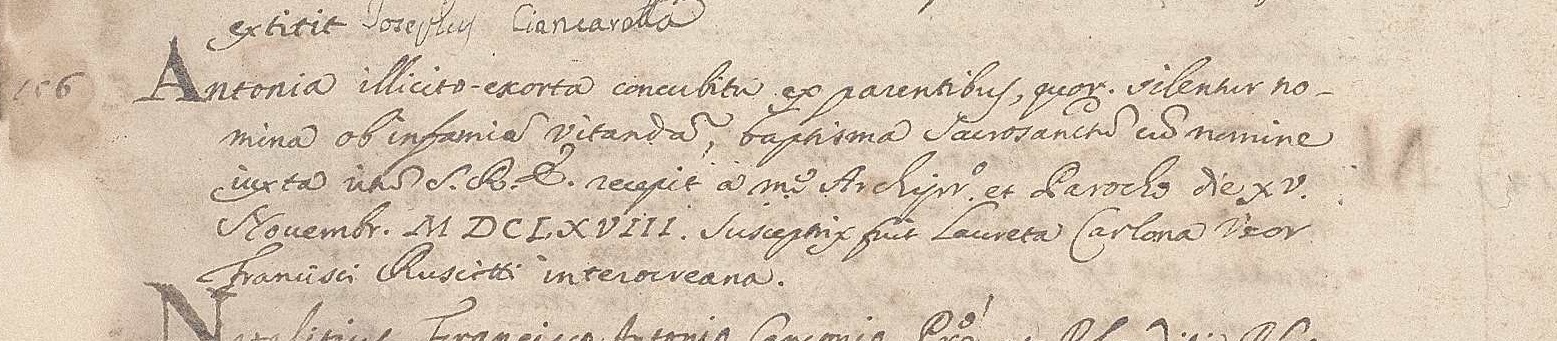 extitit Josephus Ciancarella
156
Antonia illicito-exorta concubitu ex parentibus, quor. silentur no-
mina ob infamiã vitandã, baptisma Sacrosanctũ cũ nomine
iuxta ritũ S.R.E. recepit a me Archipr. et Parocho die xv.
Nouembr. MDCLXVIII. Susceptrix fuit Laureta Carlona Vxor
Francisci Ruscitti interocreana.
Francisco Antonio